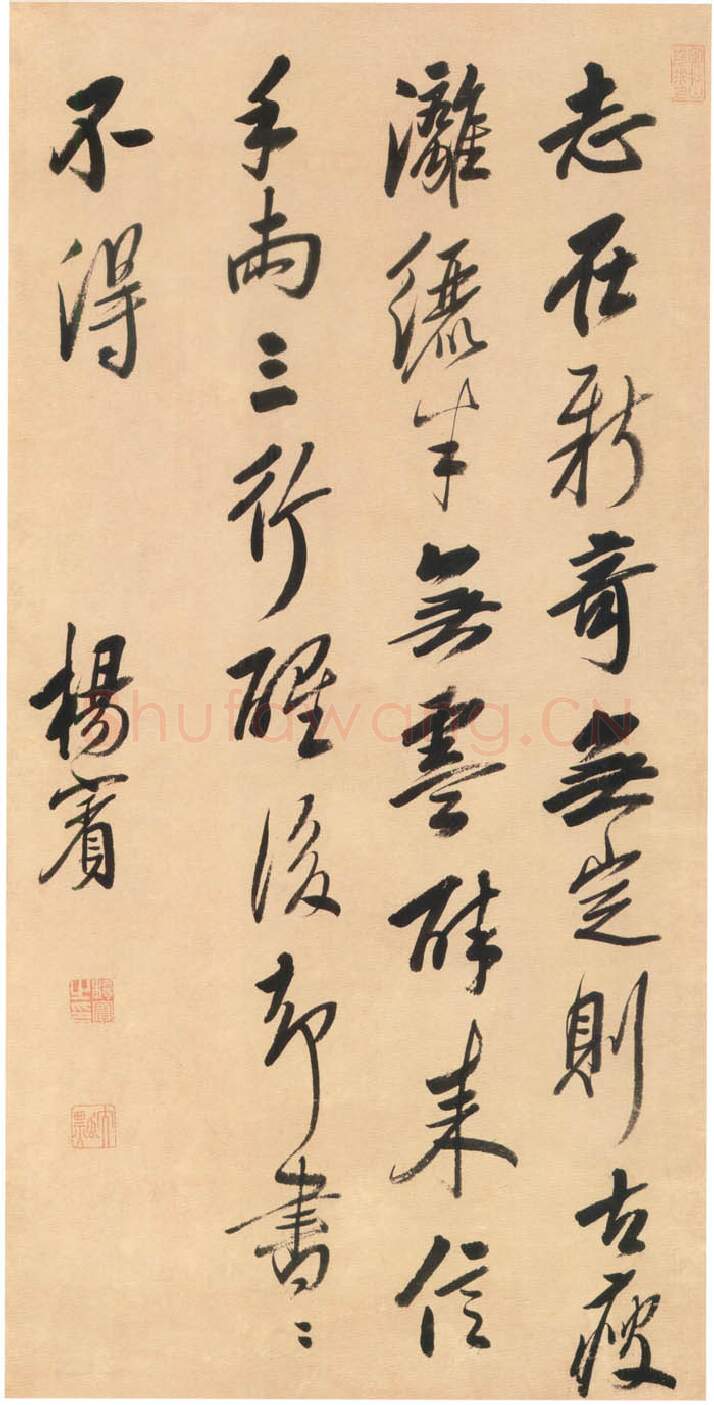 志在新奇無定則古瘦
灕纚半無墨醉来信
手兩三行醒後却書〻
不得
楊賓
Shufawang.CN